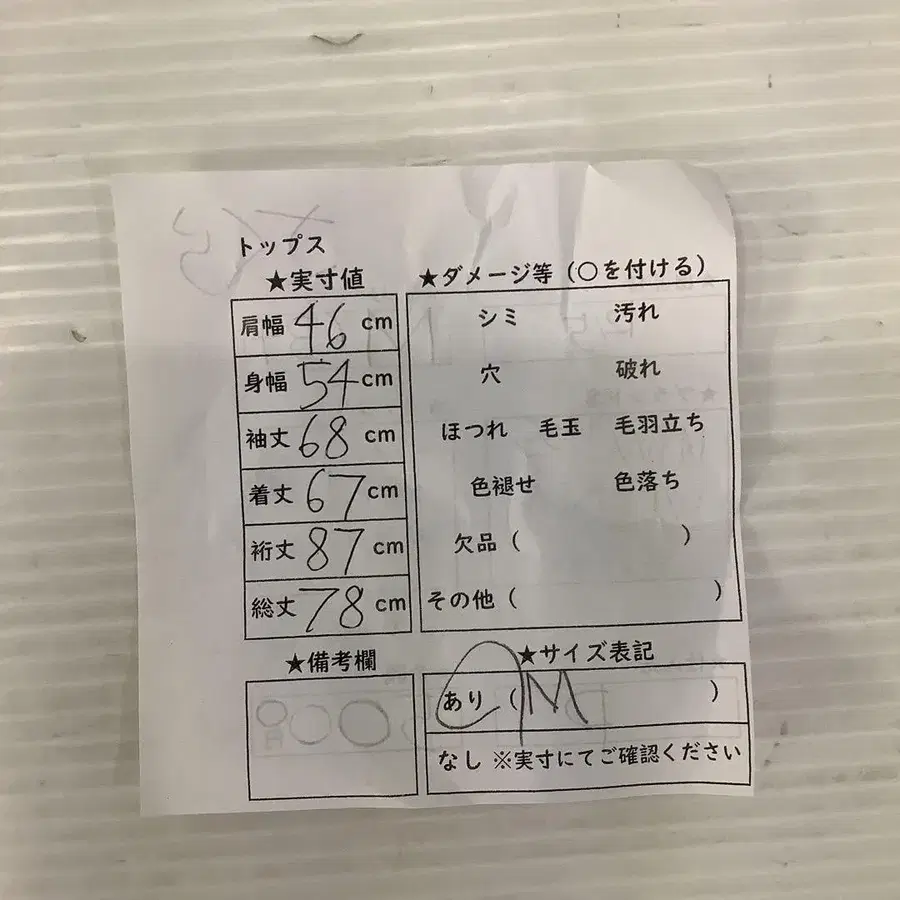 トップス
★実寸値
肩幅 46 cm
身幅 54 cm
袖丈 68 cm
着丈 67 cm
裄丈 87 cm
総丈 78 cm
★備考欄
★ダメージ等(○を付ける)
シミ 汚れ
穴 破れ
ほつれ 毛玉 毛羽立ち
色褪せ 色落ち
欠品( )
その他( )
★サイズ表記
あり (M )
なし ※実寸にてご確認ください